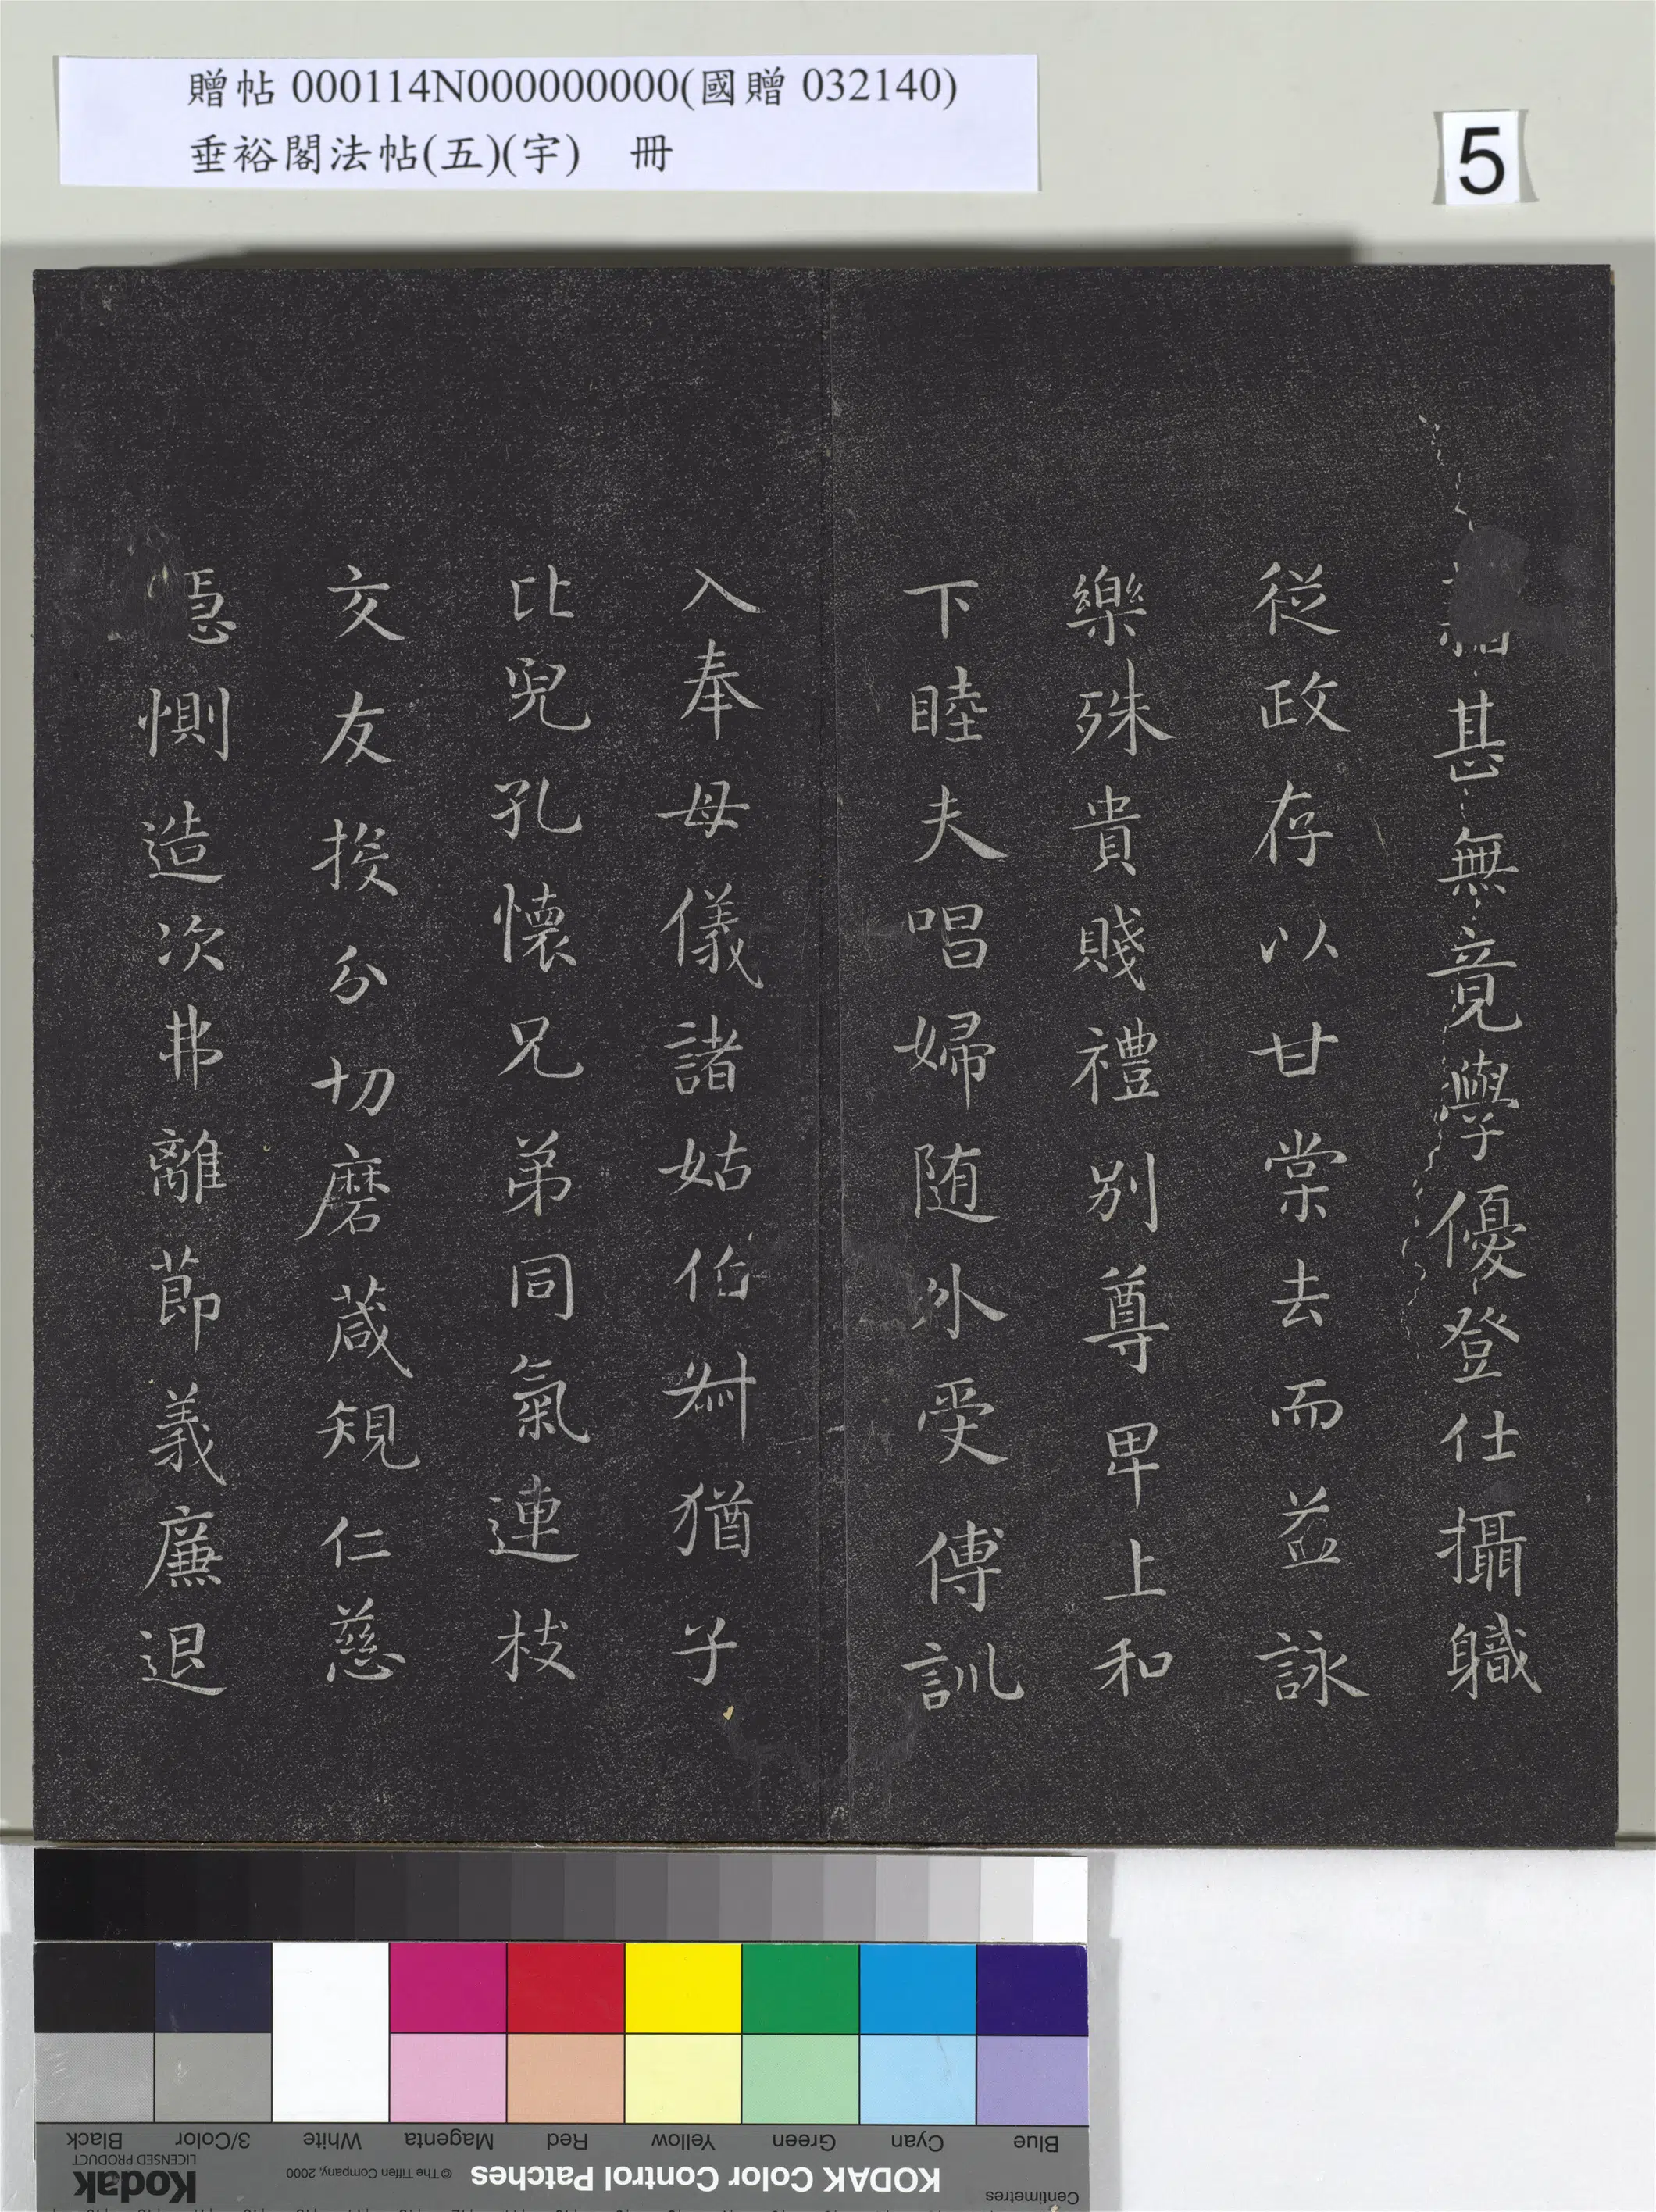 贈帖 000114N000000000(國贈 032140)
垂裕閣法帖(五)(宇) 冊
5
甚無竟學優登仕攝職
従政存以甘棠去而益詠
樂殊貴賤禮別尊卑上和
下睦夫唱婦随外受傅訓
入奉母儀諸姑伯叔猶子
比兒孔懐兄弟同氣連枝
交友投分切磨葴規仁慈
惻造次弗離莭義廉退
Black
3/Color
White
Magenta
Red
Yellow
Green
Cyan
Blue
Kodak
LICENSED PRODUCT
© The Tiffen Company, 2000
KODAK Color Control Patches
Centimetres